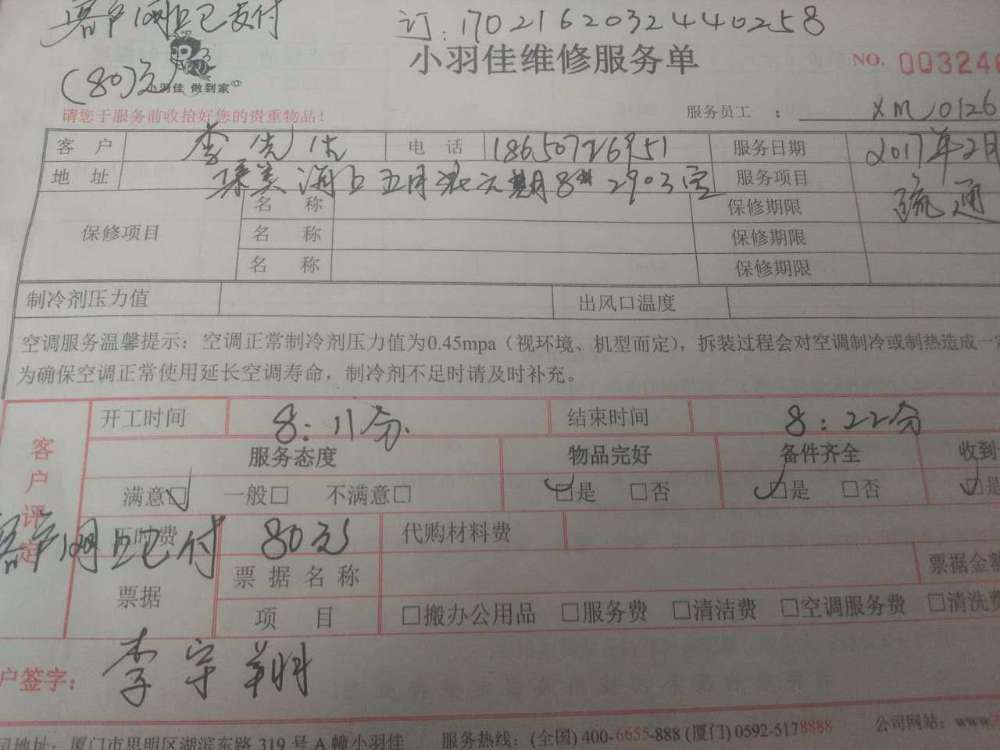 客户网上已支付 订:1702162032440258
(80)元 小羽佳 做到家 小羽佳维修服务单 NO. 003246
请您于服务前收拾好您的贵重物品! 服务员工: XM0126
客户 李先生 电话 18650726951 服务日期 2017年2月
地址 海上五月花六期8# 2903室 服务项目 疏通
保修项目 名称 保修期限
名称 保修期限
名称 保修期限
制冷剂压力值 出风口温度
空调服务温馨提示:空调正常制冷剂压力值为0.45mpa(视环境、机型而定),拆装过程会对空调制冷或制热造成一定
为确保空调正常使用延长空调寿命,制冷剂不足时请及时补充。
客户评定 开工时间 8:11分 结束时间 8:22分
服务态度 物品完好 备件齐全 收到
满意☑ 一般□ 不满意□ ☑是 □否 ☑是 □否 ☑是
工时费 80元 代购材料费
客户网上已付
票据 票据名称 票据金额
项目 □搬办公用品 □服务费 □清洁费 □空调服务费 □清洗费
户签字: 李守
司地址:厦门市思明区湖滨东路 319 号 A 幢小羽佳 服务热线:(全国) 400-6655-888 (厦门) 0592-5178888 公司网站:www.